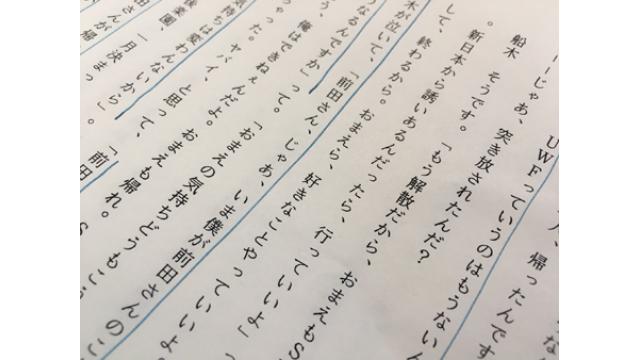 人、帰ったんです
UWFっていうのはもうないん
―じゃあ、突き放されたんだ？
船木　そうです。「もう解散だから、おまえもS
。新日本から誘いあるんだったら、行っていいよ」っ
して、終わるから。おまえら、好きなことやっていいよ
木が泣いて、「前田さん、じゃあ、いま僕が前田さんのこ
うなるんですか」って。「おまえの気持ちどうもこ
う、俺はできねぇんだよ。おまえも帰れ。
ちゃった。ヤバイ、と思って、「前田
気持ちは変わんないから」
後楽園、一月決まっ
さんが帰